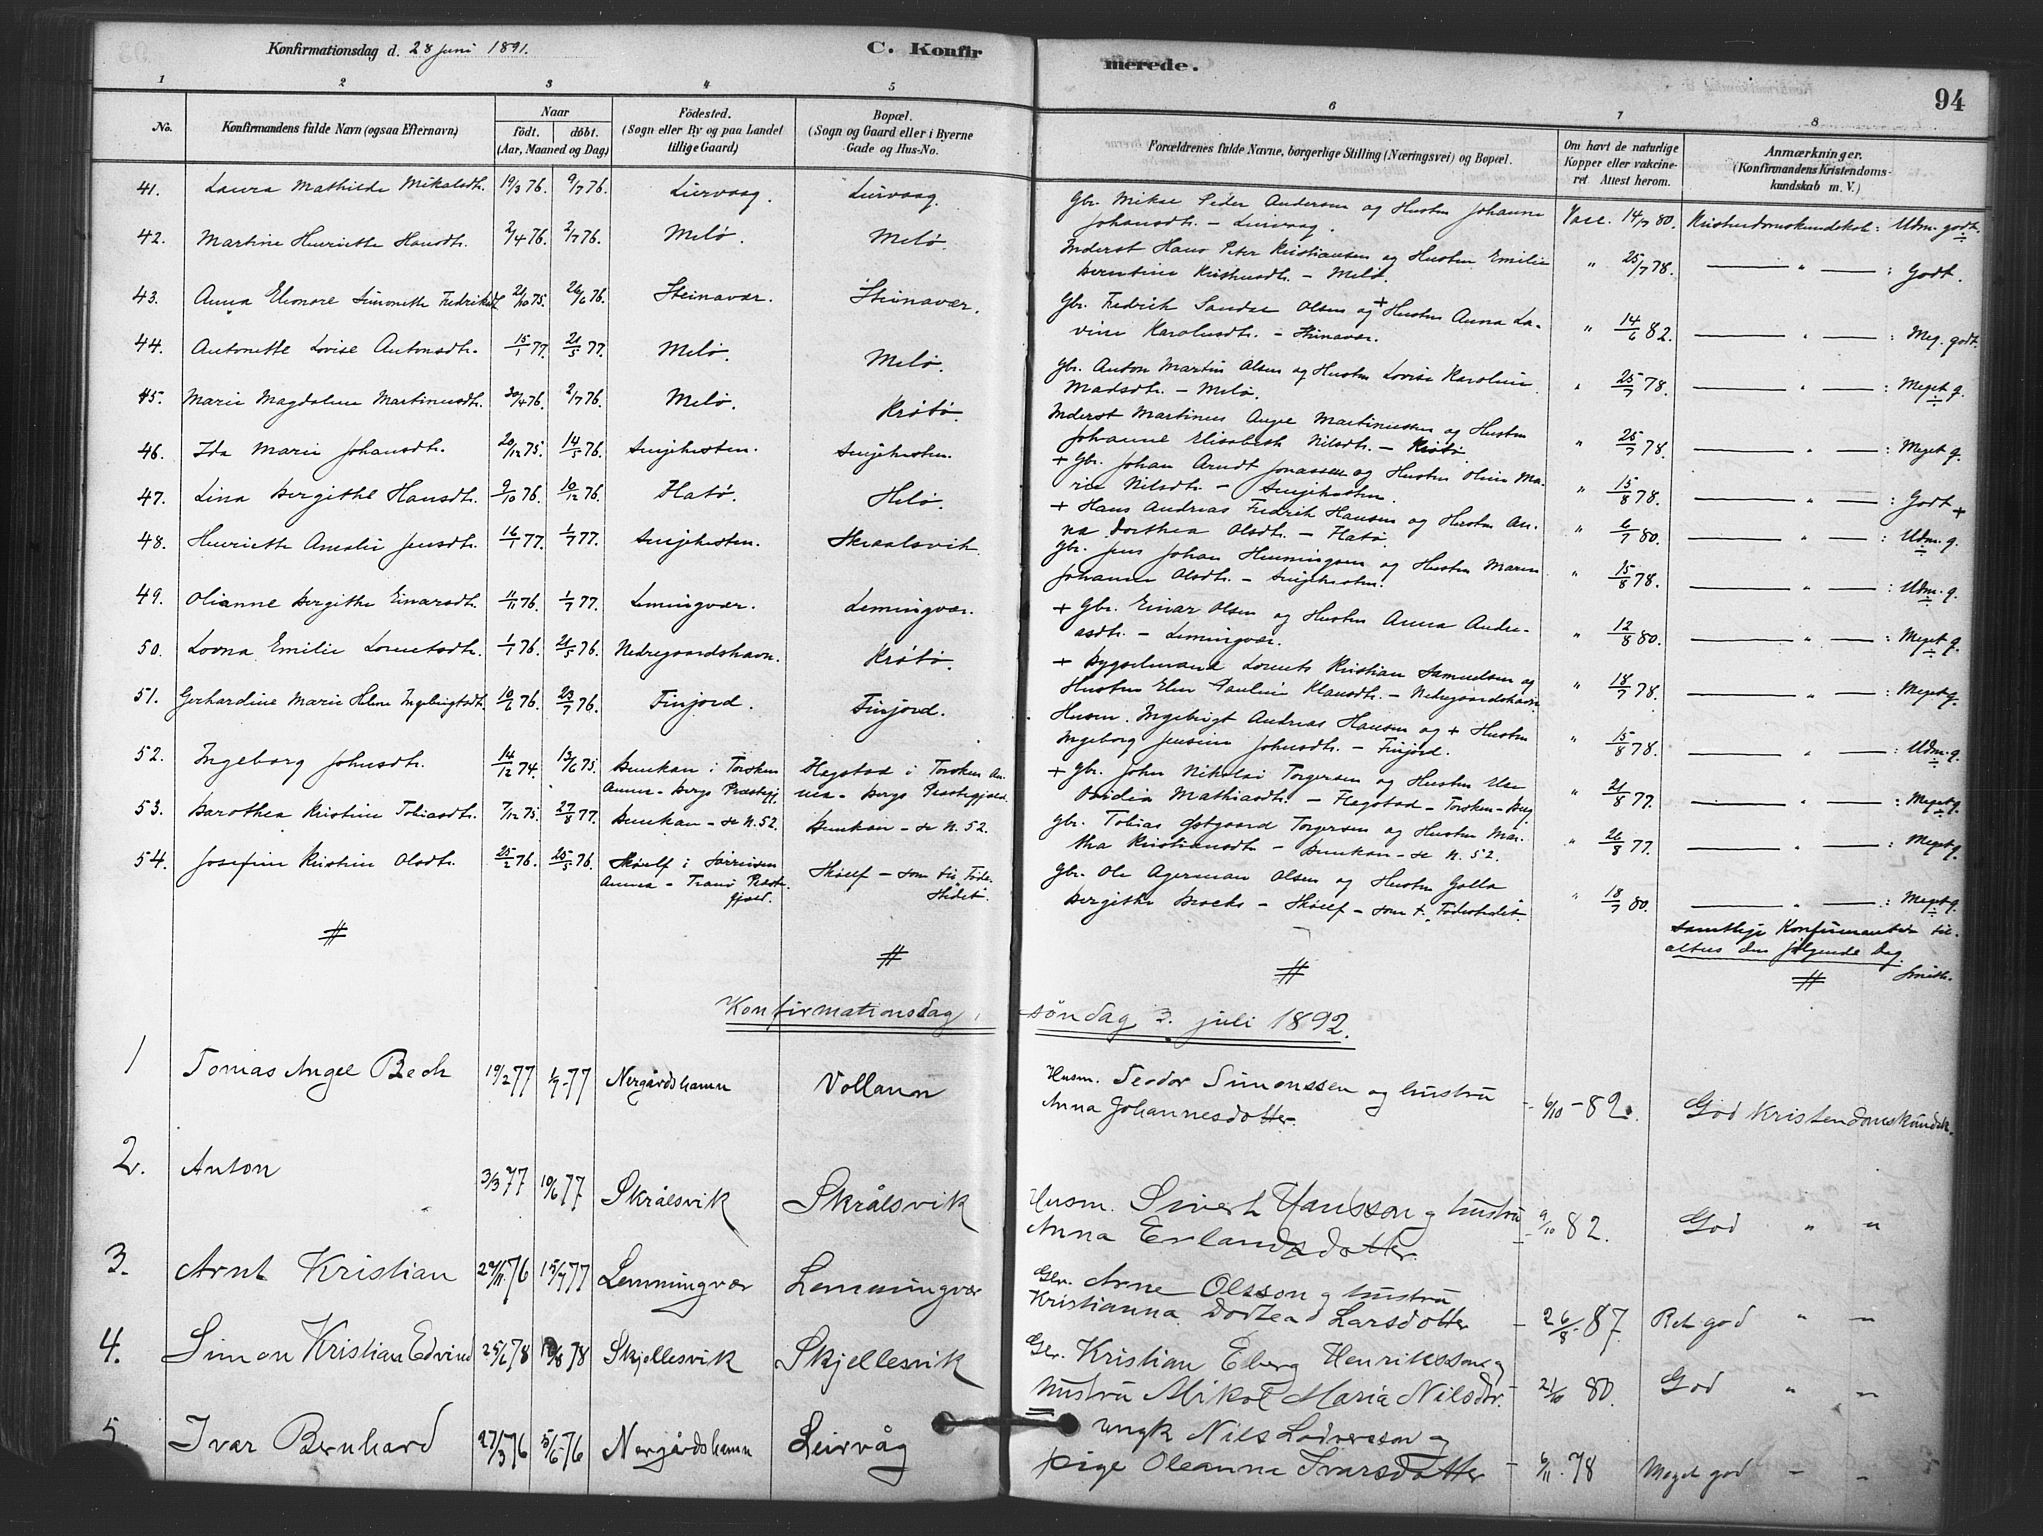 Konfirmationsdag d. 28 Juni 1891.
C. Konfir
merede.
94
1 2 3 4 5 6 7 8
No.
Konfirmandens fulde Navn (ogsaa Efternavn)
Naar
födt. döbt.
(Aar, Maaned og Dag)
Födested.
(Sogn eller By og paa Landet
tillige Gaard)
Bopæl.
(Sogn og Gaard eller i Byerne
Gade og Hus-No.
Forældrenes fulde Navne, borgerlige Stilling (Næringsvei) og Bopæl.
Om havt de naturlige
Kopper eller vakcine-
ret Attest herom.
Anmærkninger.
(Konfirmandens Kristendoms-
kundskab m. V.)
41. Laura Mathilde Mikalsdtr. 19/3 76. 9/7 76. Liervaag. Liervaag. Gbr. Mikal Peder Andersen og Hustru Johanne
Johansdtr. – Liervaag. Vacc. 14/7 80. Kristendomskundskab: Udm. godt.
42. Martine Henriette Hansdtr. 2/4 76. 2/7 76. Melö. Melö. Inderst Hans Peter Kristiansen og Hustru Emilie
Berntine Kristiansdtr. – Melö. " 25/7 78. " : Godt.
43. Anna Elenore Simonette Fredriksdtr. 21/10 75. 26/6 76. Steinavær. Steinavær. Gbr. Fredrik Sander Olsen og + Hustru Anna La-
vine Karolusdtr. – Steinavær. " 14/6 82. " : Meg. godt.
44. Antonette Lovise Antonsdtr. 15/1 77. 21/5 77. Melö. Melö. Gbr. Anton Martin Olsen og Hustru Lovise Karoline
Madsdtr. – Melö. " 25/7 78. " : Meget g.
45. Marie Magdalene Martinusdtr. 30/4 76. 2/7 76. Melö. Krötö. Inderst Martinus Angel Martinussen og Hustru
Johanne Elisabeth Nilsdtr. – Krötö. " 25/7 78. " : Meget g.
46. Ida Marie Johansdtr. 20/12 75. 14/5 76. Senjehesten. Senjehesten. + Gbr. Johan Arndt Jonassen og Hustru Oline Ma-
rie Nilsdtr. – Senjehesten. " 15/8 78. " : Godt +
47. Lina Bergithe Hansdtr. 9/10 76. 10/12 76. Flatö. Helö. + Hans Andreas Fredrik Hansen og Hustru An-
na Dorthea Olsdtr. – Flatö. " 6/7 80. " : Udm. g.
48. Henriette Amalie Jensdtr. 16/1 77. 1/7 77. Senjehesten. Skraalsvik. Gbr. Jens Johan Henningsen og Hustru Maren
Johanna Olsdtr. – Senjehesten. " 15/8 78. " : Udm. g.
49. Olianne Bergithe Einarsdtr. 11/11 76. 1/7 77. Lemingvær. Lemingvær. + Gbr. Einar Olsen og Hustru Anna Andre-
asdtr. – Lemingvær. " 12/8 80. " : Meget g.
50. Lovna Emilie Lorentsdtr. 1/1 76. 21/5 76. Nedregaardshavn. Krötö. + Bygselmand Lorents Kristian Samuelsen og
Hustru Elen Pauline Klausdtr. – Nedregaardshavn " 18/7 78. " : Meget g.
51. Gerhardine Marie Helene Ingebrigtsdtr. 10/6 76. 23/7 76. Finjord. Finjord. Husm. Ingebrigt Andreas Hansen og + Hustru
Ingeborg Jensine Johnsdtr. – Finjord. " 15/8 78. " : Udm. g.
52. Ingeborg Johnsdtr. 14/12 74. 13/6 75. Bunkan i Torsken
Annex – Bergs Præstegj. Flagstad i Torsken An-
nex – Bergs Præstegjæld. + Gbr. John Nikolai Torgersen og Hustru Else
Ovidia Mathiasdtr. – Flagstad – Torsken – Berg " 21/8 77. " : Meget g.
53. Barothea Kristine Tobiasdtr. 7/12 75. 27/8 77. Bunkan – se N. 52. Bunkan – se N. 52. Gbr. Tobias Östgaard Torgersen og Hustru Mar-
tha Kristiansdtr. – Bunkan – se N. 52. " 26/8 77. " : Meget g.
54. Josefine Kristine Olsdtr. 25/2 76. 25/5 76. Sköelf i Sörreisen
Annex – Tranö Præste-
gjæld. Sköelf – som til Föde-
stedet. Gbr. Ole Agerman Olsen og Hustru Golla
Bergithe Brochs – Sköelf – som t. Födestedet. " 18/7 80. " : Meget g.
Samtlige Konfirmanter til-
alters den følgende Dag.
Smith.
Konfirmationsdag, söndag 3. juli 1892.
1 Tomas Angel Bech 19/2 77 1/7-77 Nergårdshamn Vollann Husm. Teodor Simonssen og hustru
Anna Johannesdotter. – 6/10-82. God Kristendomskundsk.
2. Anton 3/3 77 10/6 77 Skrålsvik Skrålsvik Husm. Sivert Hansson og hustru
Anna Erlandsdotter. 9/10 82. God " "
3. Arnt Kristian 29/11 76 15/7 77 Lemmingvær Lemmingvær Gbr. Arne Olsson og hustru
Kristianna Dortea Larsdotter – 26/8-87. Ret god " "
4. Simon Kristian Edvind 25/6 78 18/8 78 Skjellesvik Skjellesvik Gbr. Kristian Eberg Henriksson og
hustru Mikol Maria Nilsdtr. – 21/10 80. God " "
5. Ivar Bernhard 27/3 76 5/6-76 Nergårdshamn Leirvåg Ungk Nils Lodversson og
pige Oleanna Ivarsdotter – 6/11.78 Meget god " "